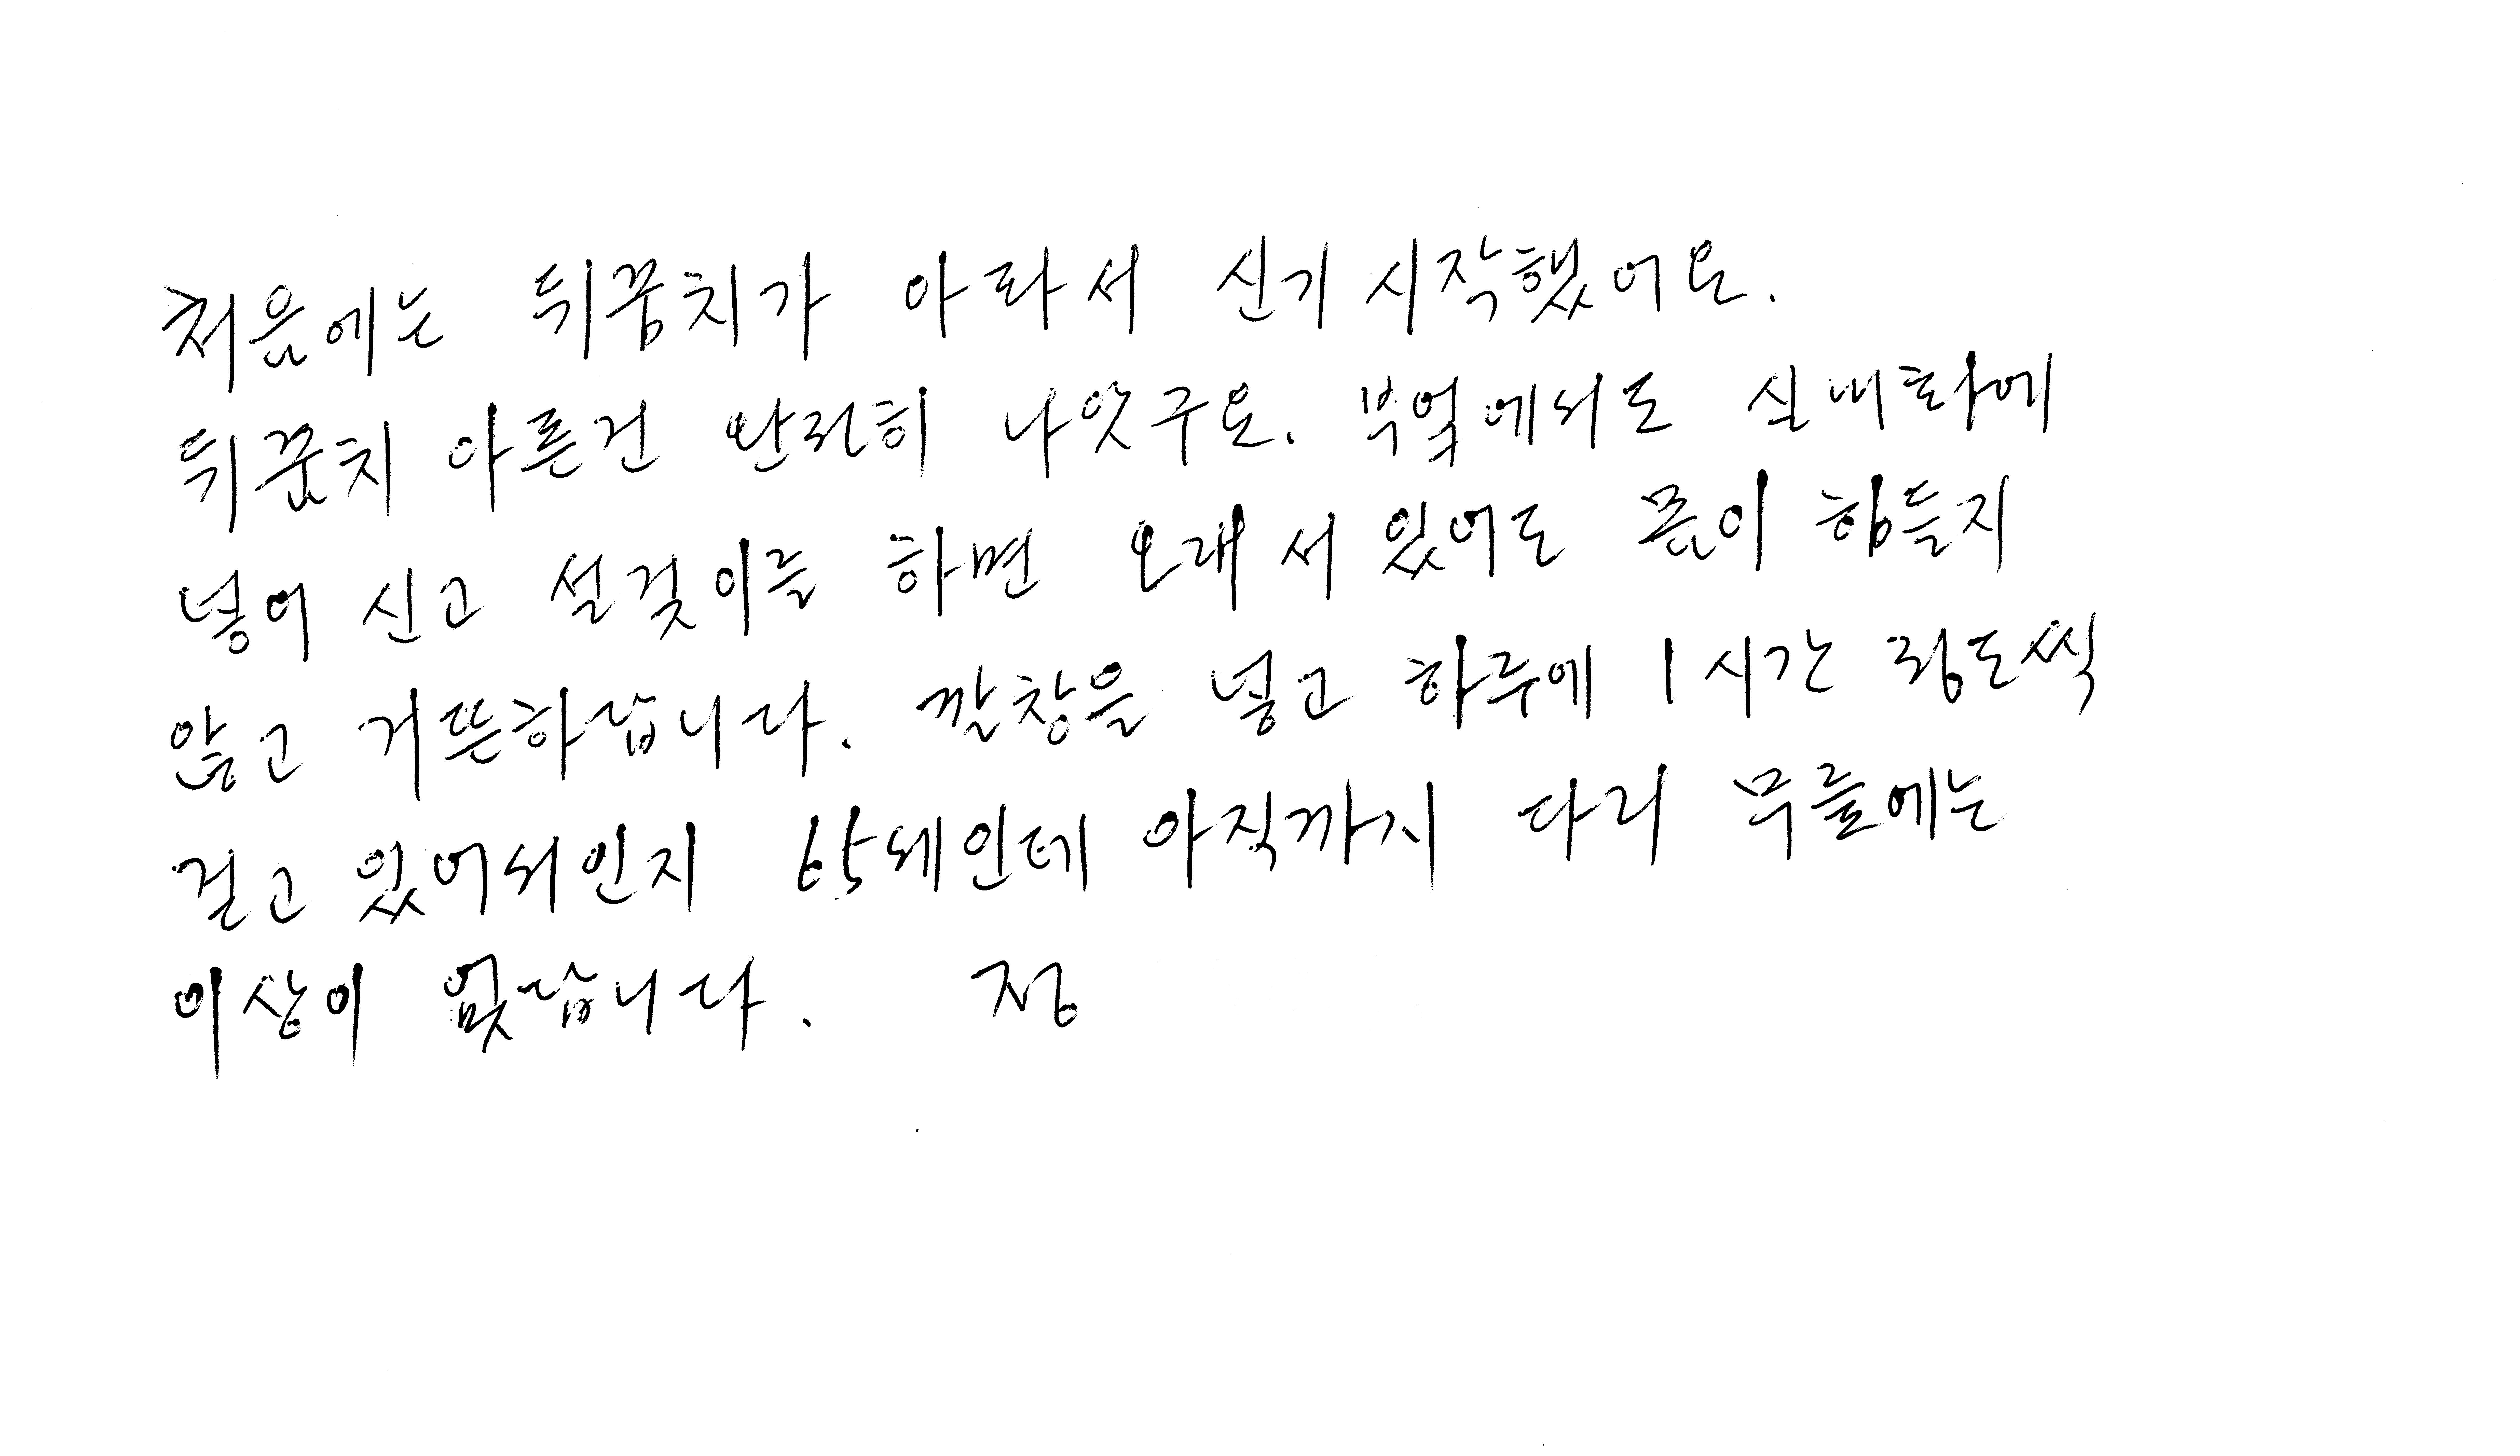 처음에는 뒤꿈치가 아파서 신기 시작했어요.
뒤꿈치 아픈건 완전히 나았구요. 부엌에서도 실내화에
넣어 신고 설겆이를 하면 오래 서 있어도 족이 힘들지
않고 거뜬하답니다. 깔창을 넣고 하루에 1시간 정도씩
걷고 있어서인지 60세인데 아직까지 다리 무릎에는
이상이 없답니다.